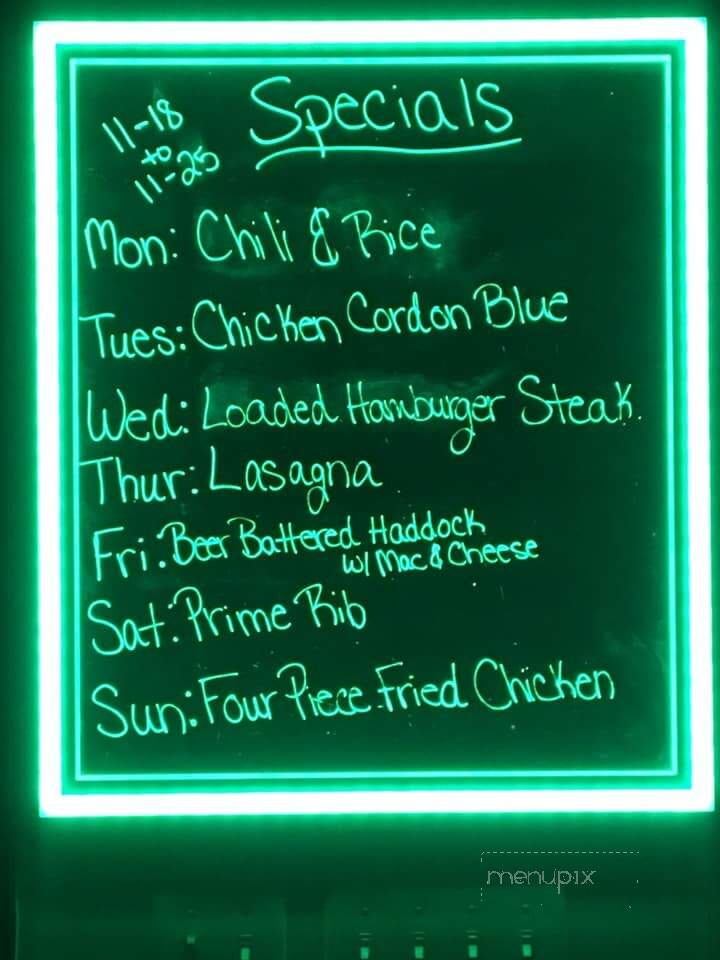 Specials
11-18
to
11-25
Mon: Chili & Rice
Tues: Chicken Cordon Blue
Wed: Loaded Hamburger Steak.
Thur: Lasagna
Fri: Beer Battered Haddock
w/ Mac & Cheese
Sat: Prime Rib
Sun: Four Piece Fried Chicken
menupix